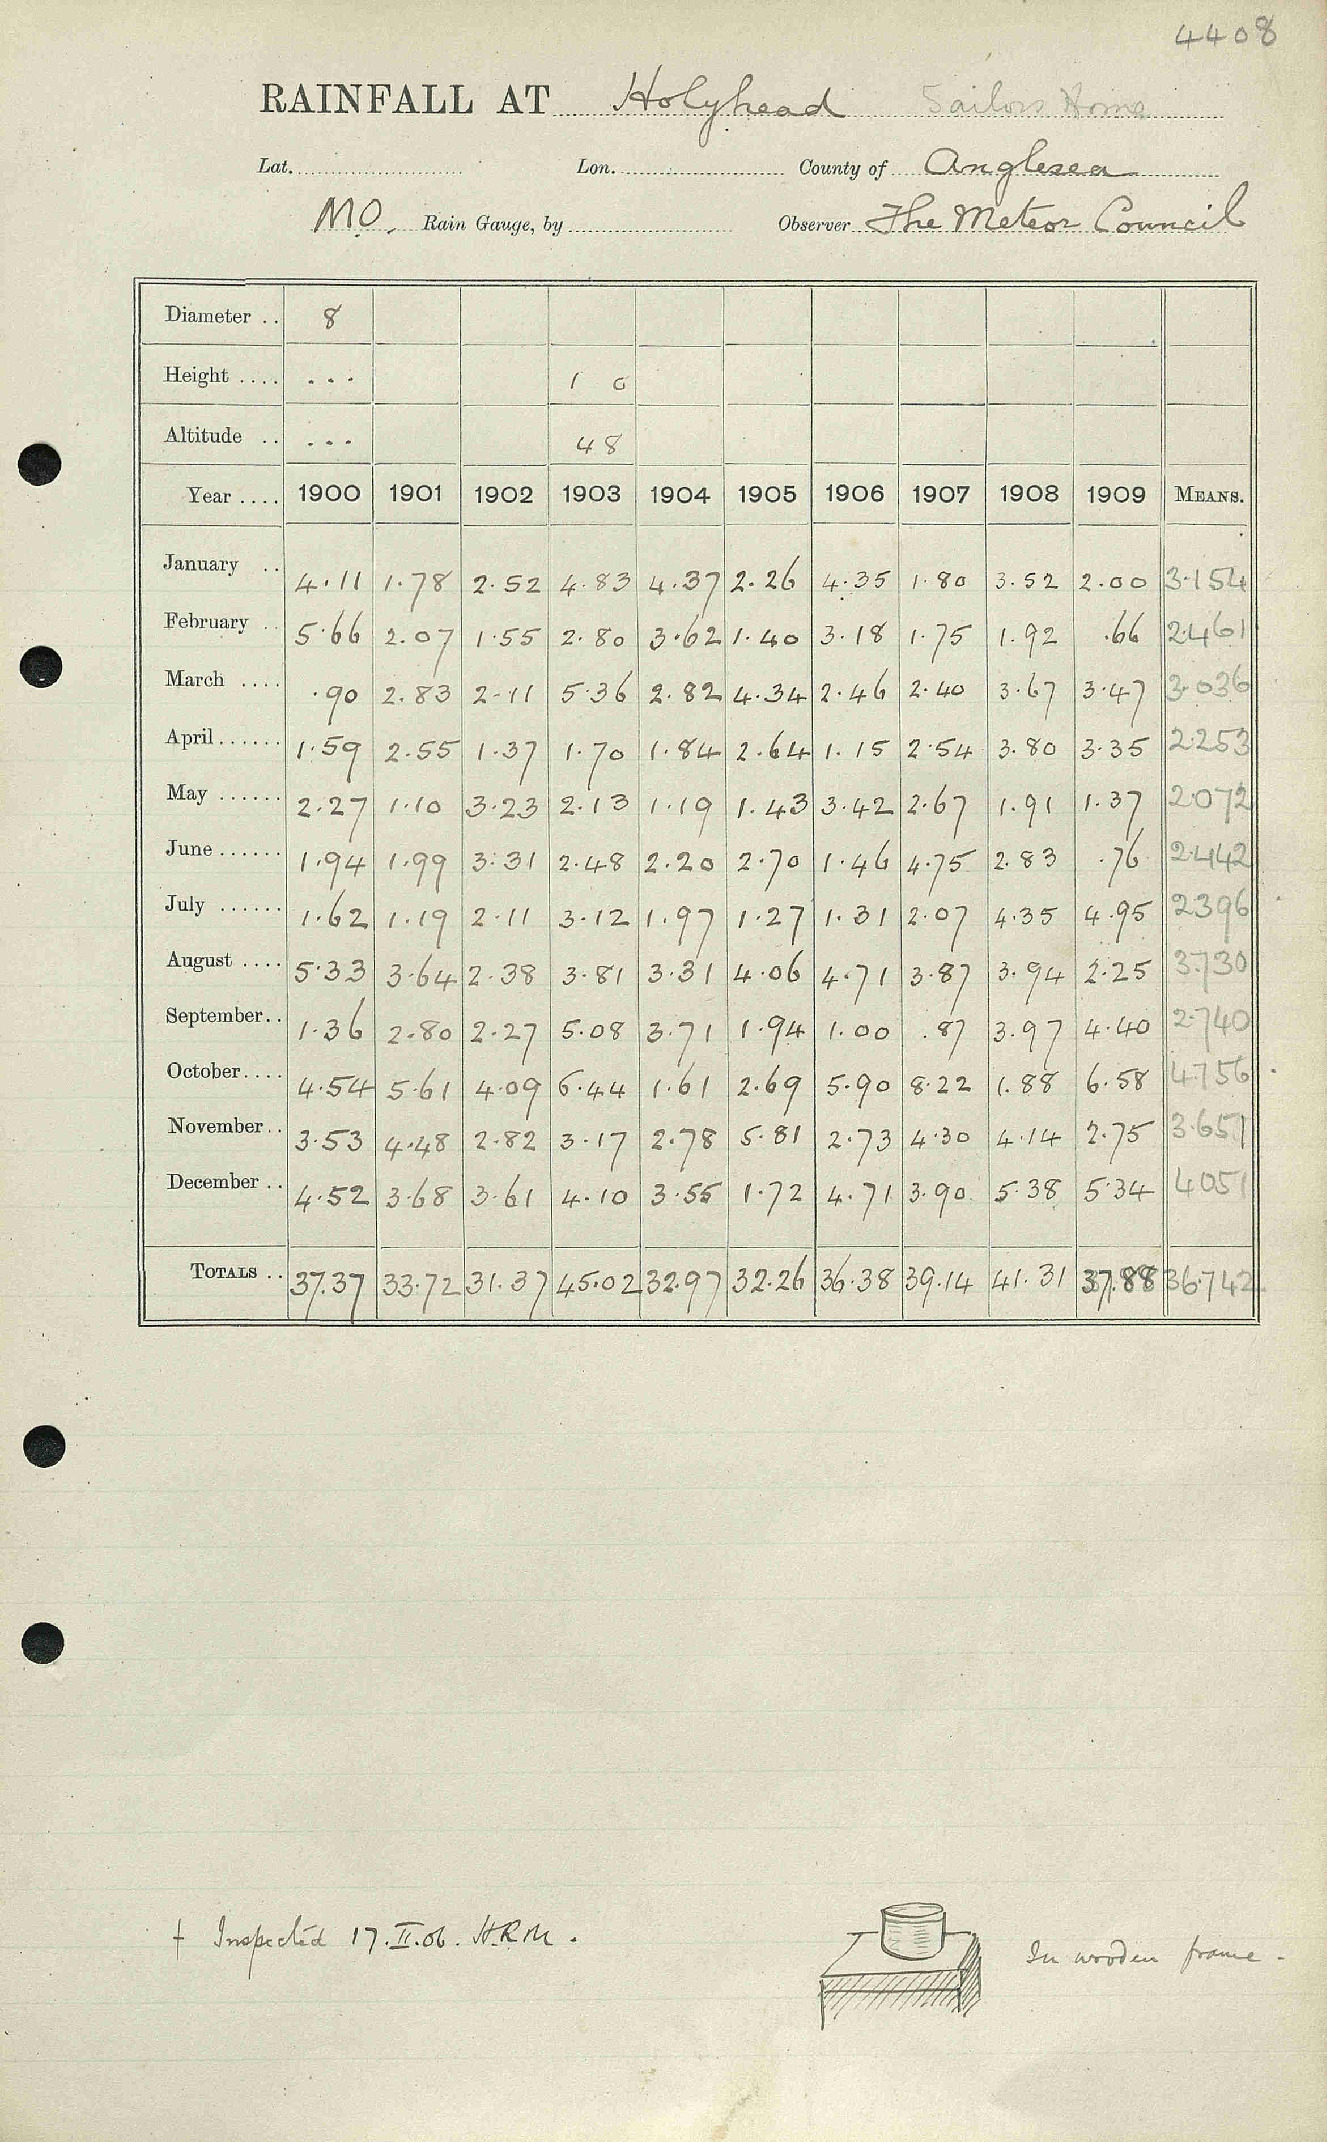 4408
RAINFALL AT Holyhead Sailors Home
Lat. Lon. County of Anglesea
M.O. Rain Gauge, by Observer The Meteor Council
Diameter .. 8
Height .... ... 1 0
Altitude .. ... 48
Year .... 1900 1901 1902 1903 1904 1905 1906 1907 1908 1909 MEANS.
January .. 4.11 1.78 2.52 4.83 4.37 2.26 4.35 1.80 3.52 2.00 3.154
February .. 5.66 2.07 1.55 2.80 3.62 1.40 3.18 1.75 1.92 .66 2.461
March .... .90 2.83 2.11 5.36 2.82 4.34 2.46 2.40 3.67 3.47 3.036
April ...... 1.59 2.55 1.37 1.70 1.84 2.64 1.15 2.54 3.80 3.35 2.253
May ...... 2.27 1.10 3.23 2.13 1.19 1.43 3.42 2.67 1.91 1.37 2.072
June ...... 1.94 1.99 3.31 2.48 2.20 2.70 1.46 4.75 2.83 .76 2.442
July ...... 1.62 1.19 2.11 3.12 1.97 1.27 1.31 2.07 4.35 4.95 2396
August .... 5.33 3.64 2.38 3.81 3.31 4.06 4.71 3.87 3.94 2.25 3.730
September .. 1.36 2.80 2.27 5.08 3.71 1.94 1.00 .87 3.97 4.40 2.740
October .... 4.54 5.61 4.09 6.44 1.61 2.69 5.90 8.22 1.88 6.58 4.756
November .. 3.53 4.48 2.82 3.17 2.78 5.81 2.73 4.30 4.14 2.75 3.651
December .. 4.52 3.68 3.61 4.10 3.55 1.72 4.71 3.90 5.38 5.34 4051
TOTALS .. 37.37 33.72 31.37 45.02 32.97 32.26 36.38 39.14 41.31 37.88 36.742
† Inspected 17.II.06. H.R.M.
In wooden frame.